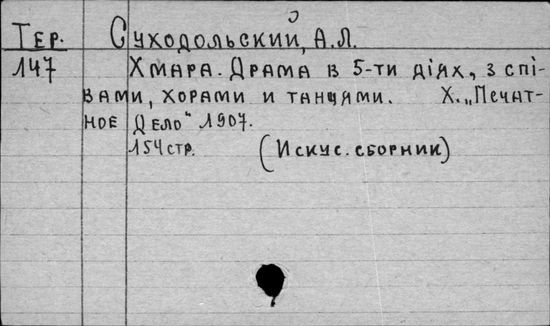 Тер. Суходольский, А.Л.
147 Хмара. Драма в 5-ти діях, з спі-
вами, хорами и танцями. Х. „Печат-
ное Дело" 1907.
154 стр. (Искус. сборник)